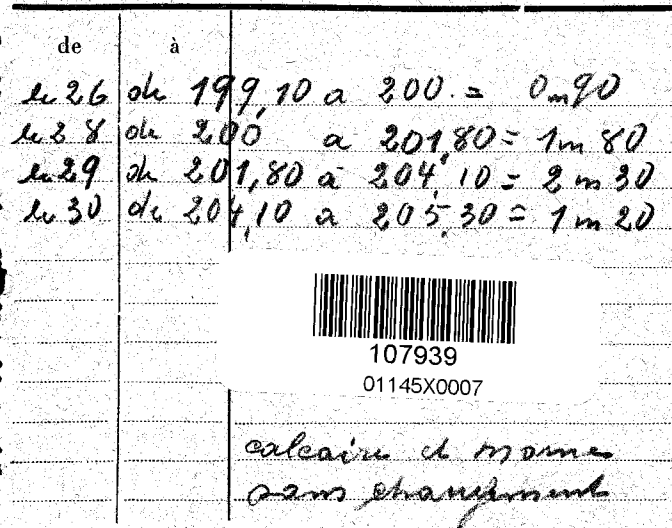 de à
le 26 de 199,10 a 200. = 0m90
le 28 de 200 a 201,80 = 1m 80
le 29 de 201,80 à 204,10 = 2 m 30
le 30 de 204,10 a 205,30 = 1 m 20
107939
01145X0007
calcaire et marnes
sans changement